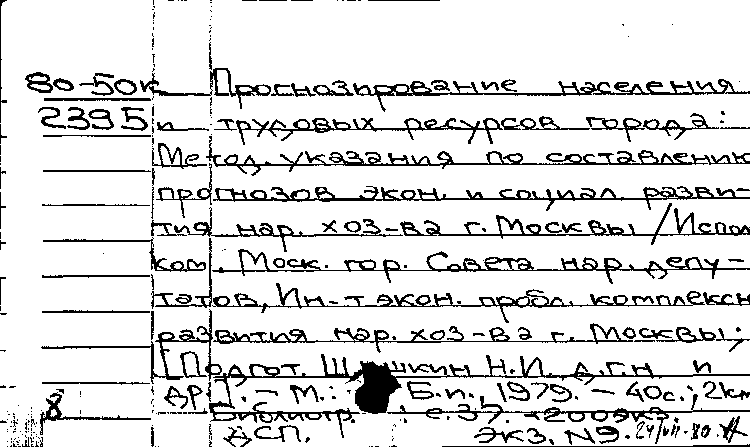 80-50к Прогнозирование населения
2395 и трудовых ресурсов города:
Метод. указания по составлению
прогнозов экон. и социал. разви-
тия нар. хоз-ва г. Москвы /Испол
ком. Моск. гор. Совета нар. депу-
татов, Ин-т экон. пробл. комплексн
развития нар. хоз-ва г. Москвы;
[Подгот. Шишкин Н.И. д.г.н и
др.]. - М.: Б.и., 1979. - 40с.; 2
8 Библиогр. : с.37. 200экз
ДСП. Экз. N9. 24/VII-80.